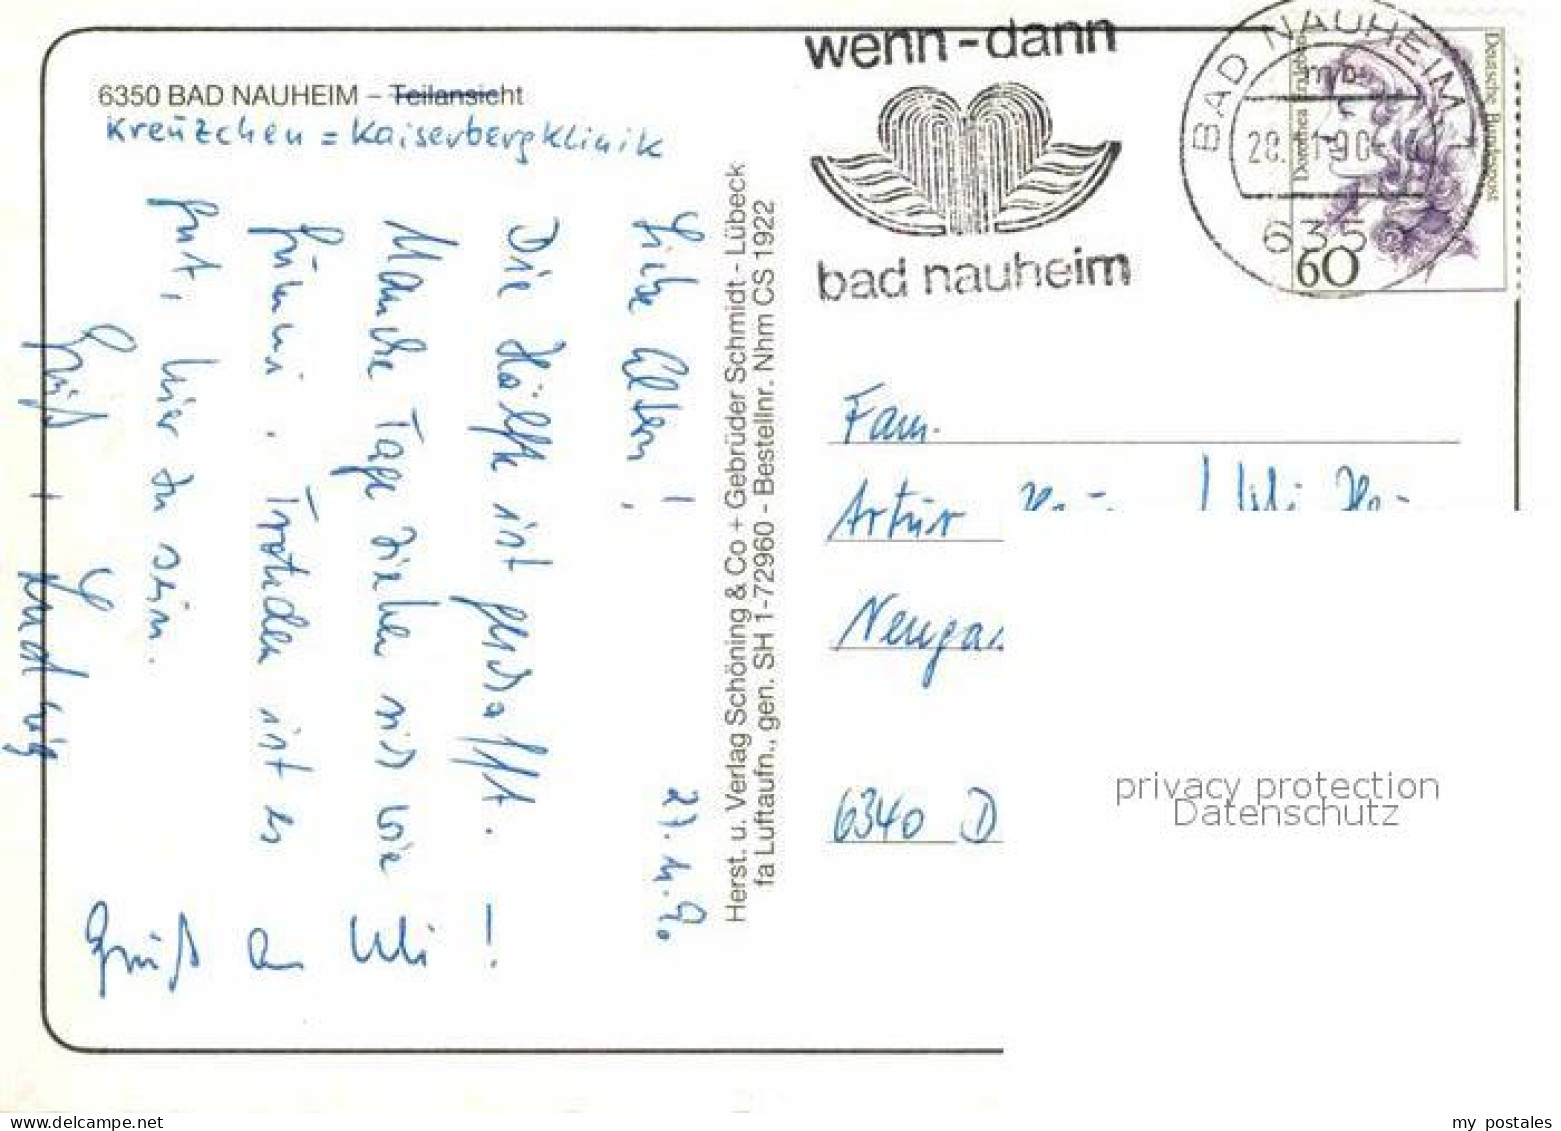 6350 BAD NAUHEIM – Teilansicht
Kreuzchen = Kaiserbergklinik
wenn-dann
bad nauheim
BAD NAUHEIM 1
635
Deutsche Bundespost
Dorothea Erxleben
60
Liebe Eltern!
27.11.90
Die Hälfte ist geschafft.
Manche Tage ziehen sich wie
Trotzdem ist es
gut, hier zu sein.
Gruß + Ludwig
Gruß an Uli!
Herst. u. Verlag Schöning & Co + Gebrüder Schmidt - Lübeck
fa Luftaufn., gen. SH 1-72960 - Bestellnr. Nhm CS 1922
Fam.
Artur
Neugas
6340 D
privacy protection
Datenschutz
my postales